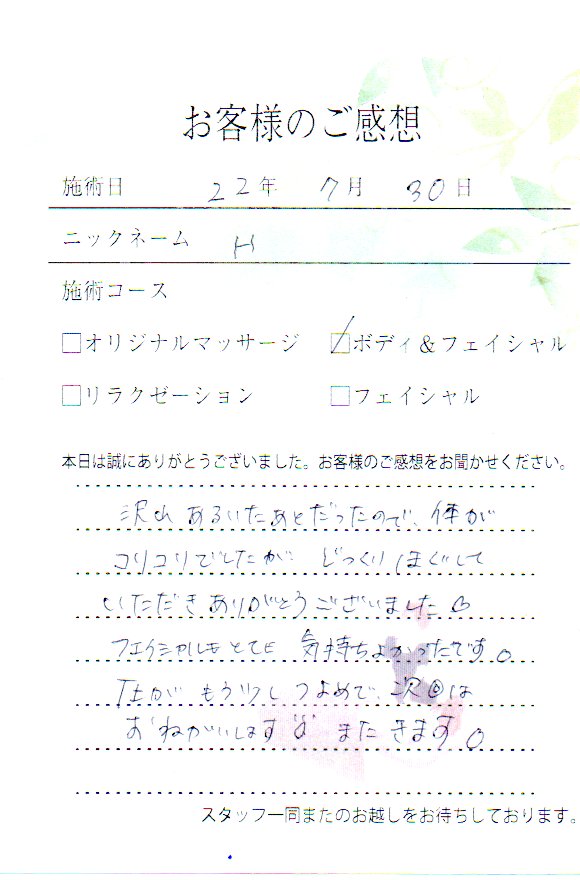 お客様のご感想
施術日 22年 7月 30日
ニックネーム H
施術コース
□オリジナルマッサージ ☑ボディ&フェイシャル
□リラクゼーション □フェイシャル
本日は誠にありがとうございました。お客様のご感想をお聞かせください。
沢山あるいたあとだったので、体が
コリコリでしたが じっくりほぐして
いただきありがとうございました♡
フェイシャルもとても 気持ちよかったです。
圧が もう少し つよめで、次回は
おねがいします またきます。
スタッフ一同またのお越しをお待ちしております。